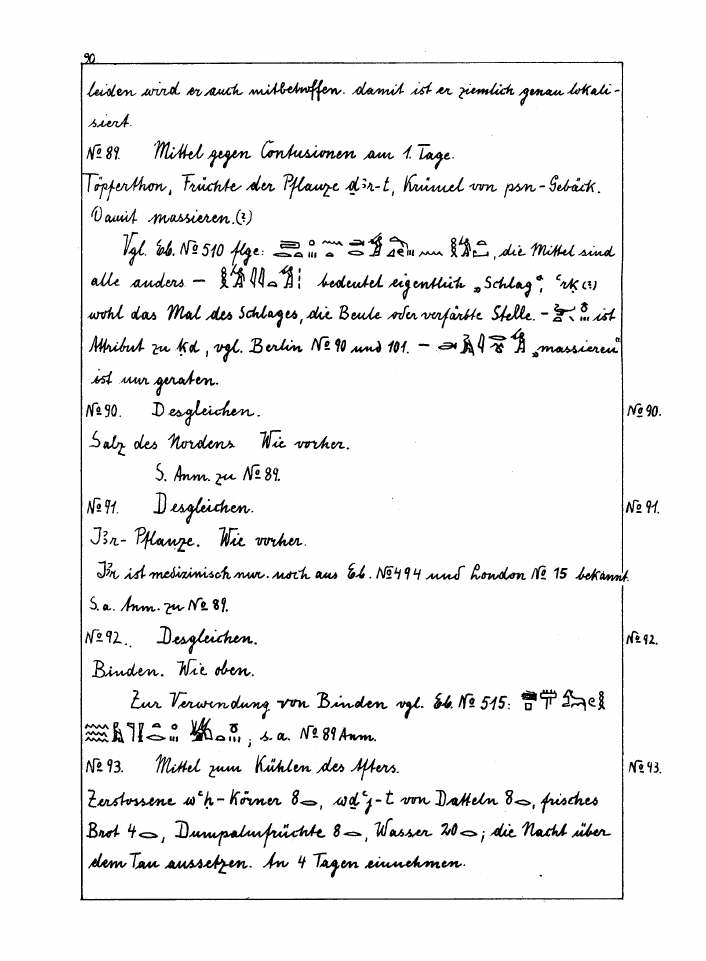 90
leiden wird er auch mitbetroffen. damit ist er ziemlich genau lokali-
siert.
No 89. Mittel gegen Contusionen am 1. Tage.
Töpferthon, Früchte der Pflanze ḏꜣr-t, Krümel von psn-Gebäck.
Damit massieren.(?)
Vgl. Eb. No 510 flge: , die Mittel sind
alle anders — bedeutet eigentlich „Schlag“, ꜥrḳ(?)
wohl das Mal des Schlages, die Beule oder verfärbte Stelle. - ist
Attribut zu ḳd, vgl. Berlin No 90 und 101. — „massieren“
ist nur geraten.
No 90. Desgleichen. No 90.
Salz des Nordens Wie vorher.
S. Anm. zu No 89.
No 91. Desgleichen. No 91.
Jꜣr- Pflanze. Wie vorher.
Jꜣr ist medizinisch nur noch aus Eb. No 494 und London No 15 bekannt.
S.a. Anm. zu No 89.
No 92. Desgleichen. No 92.
Binden. Wie oben.
Zur Verwendung von Binden vgl. Eb. No 515:
; s.a. No 89 Anm.
No 93. Mittel zum Kühlen des Afters. No 93.
Zerstossene wꜥḥ-Körner 8, wḏꜥj-t von Datteln 8, frisches
Brot 4, Dumpalmfrüchte 8, Wasser 20; die Nacht über
dem Tau aussetzen. An 4 Tagen einnehmen.